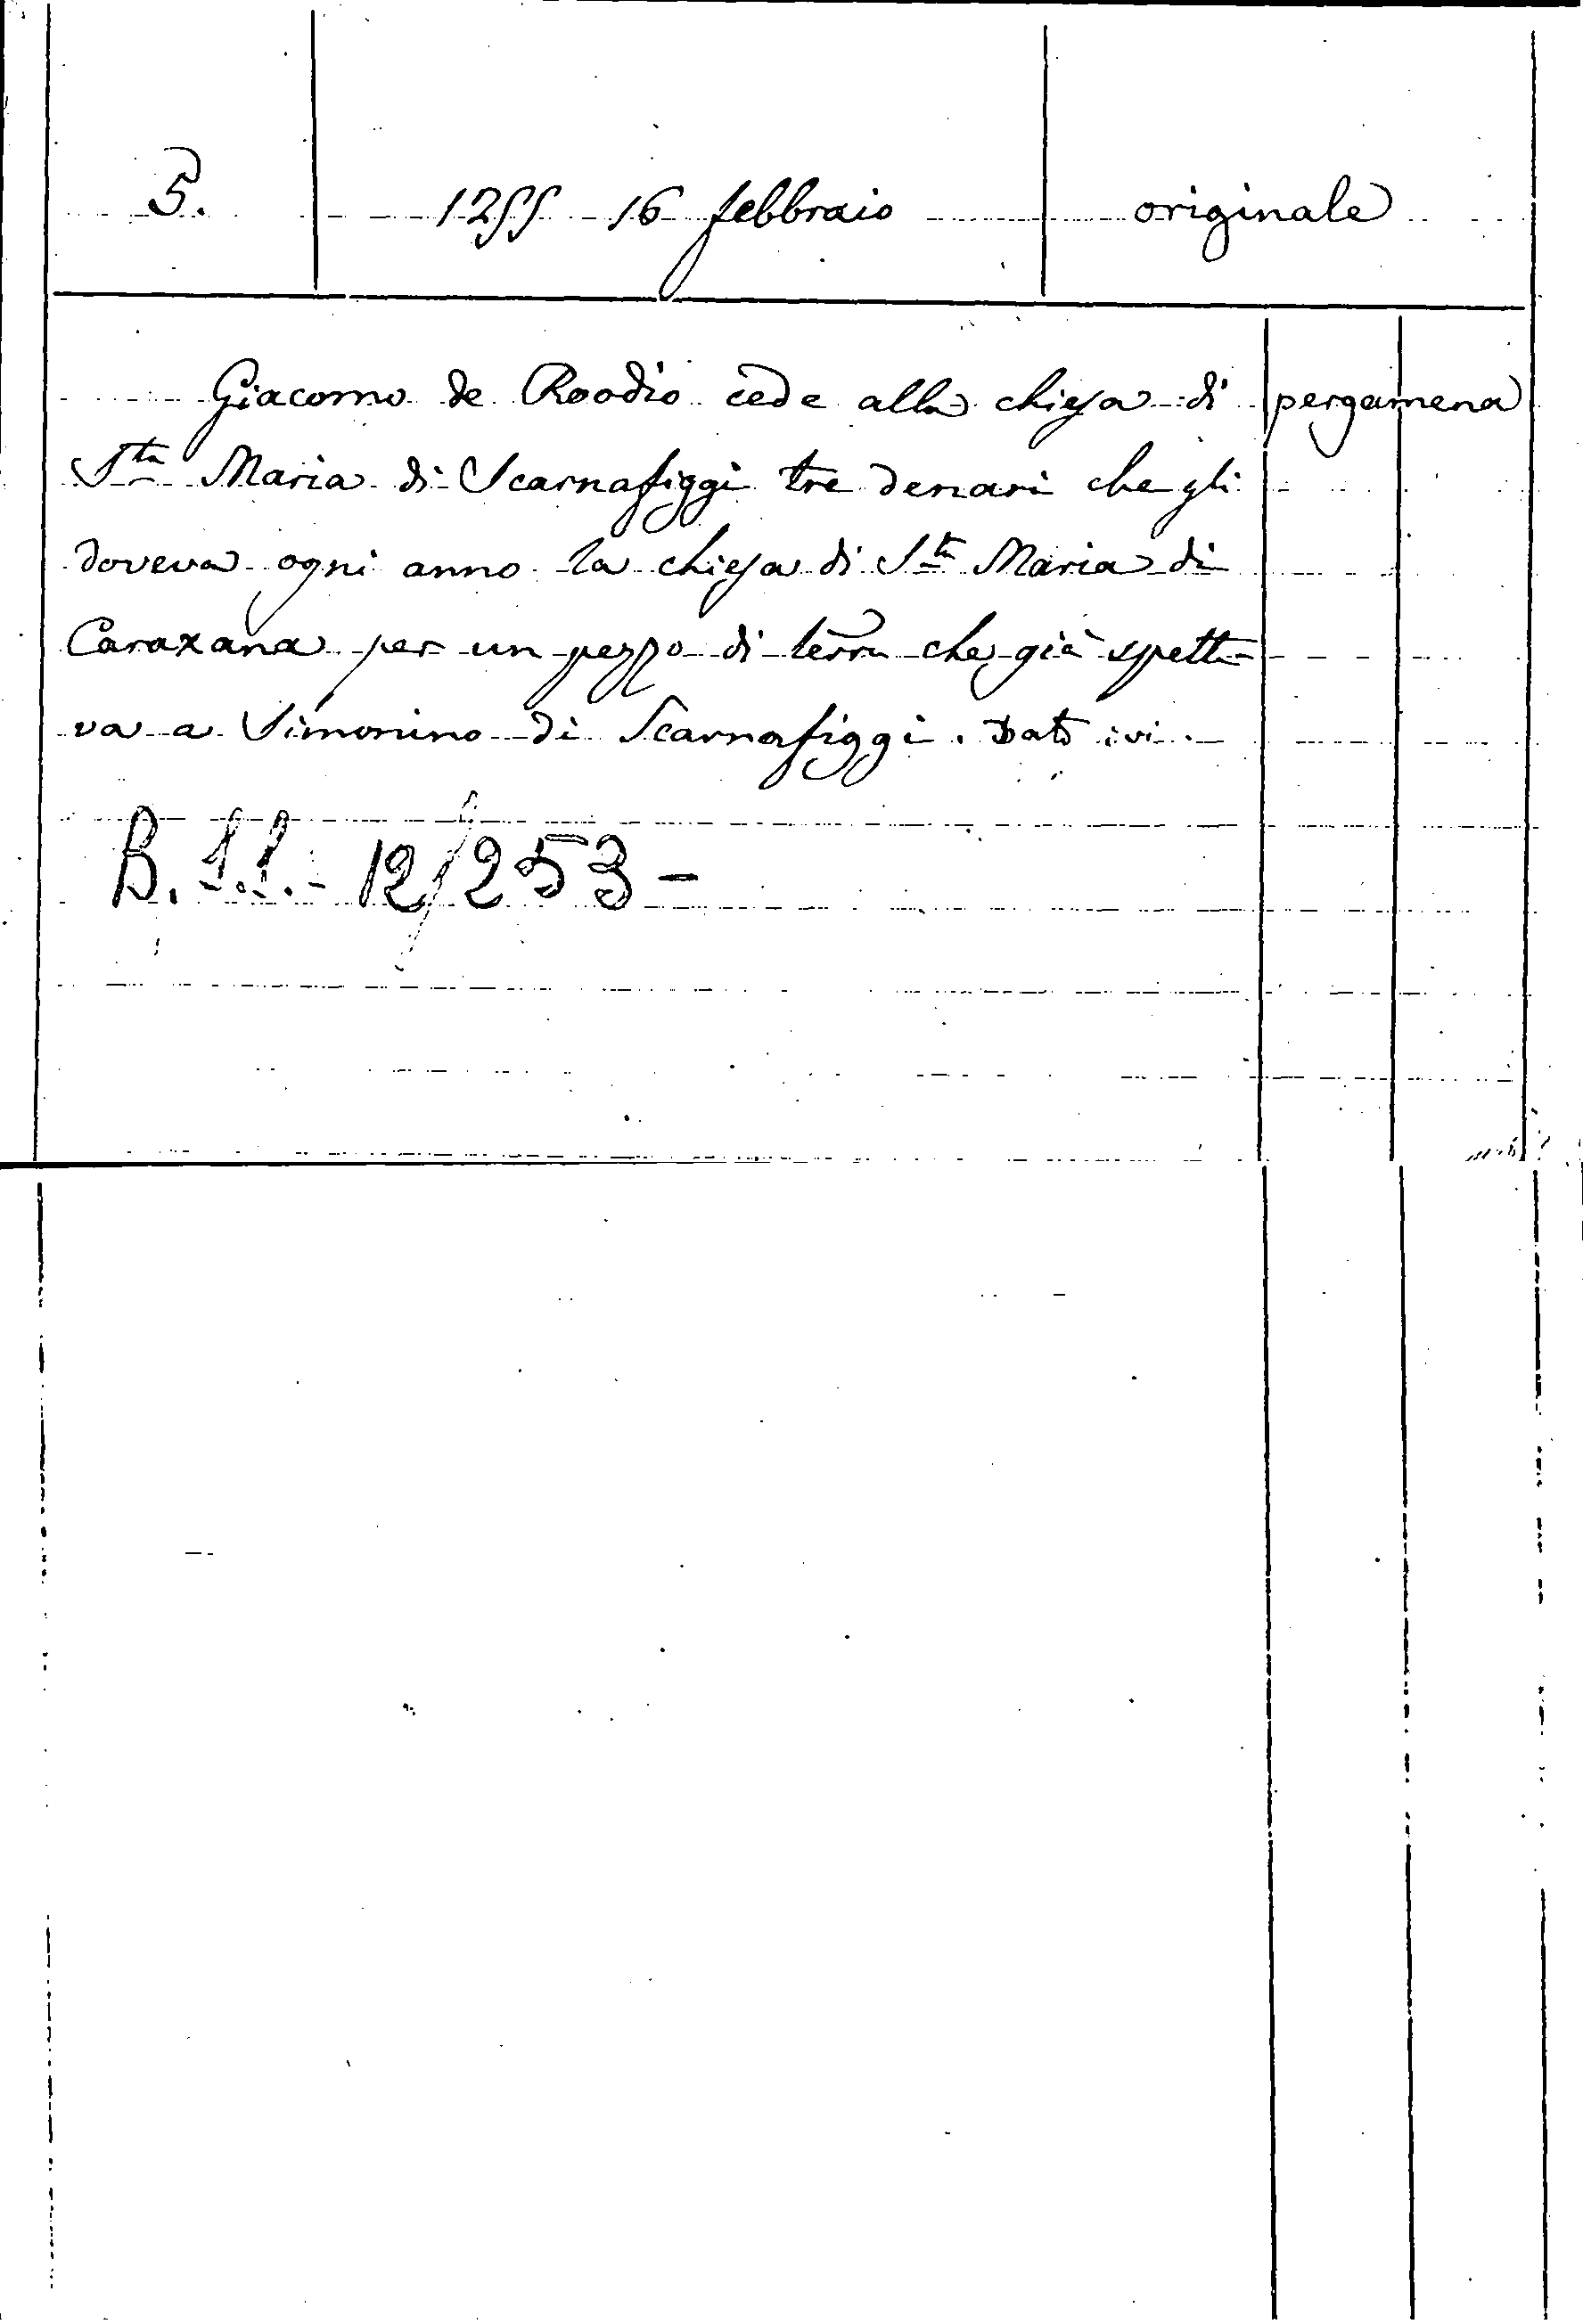 5. 1255 16 febbraio originale
Giacomo de Roodio cede alla chiesa di pergamena
Sta Maria di Scarnafiggi tre denari che gli
doveva ogni anno la chiesa di Sta Maria di
Caraxana per un pezzo di terra che già spetta-
va a Simonino di Scarnafiggi. Dato ivi.
B. S.S. - 12/253 -